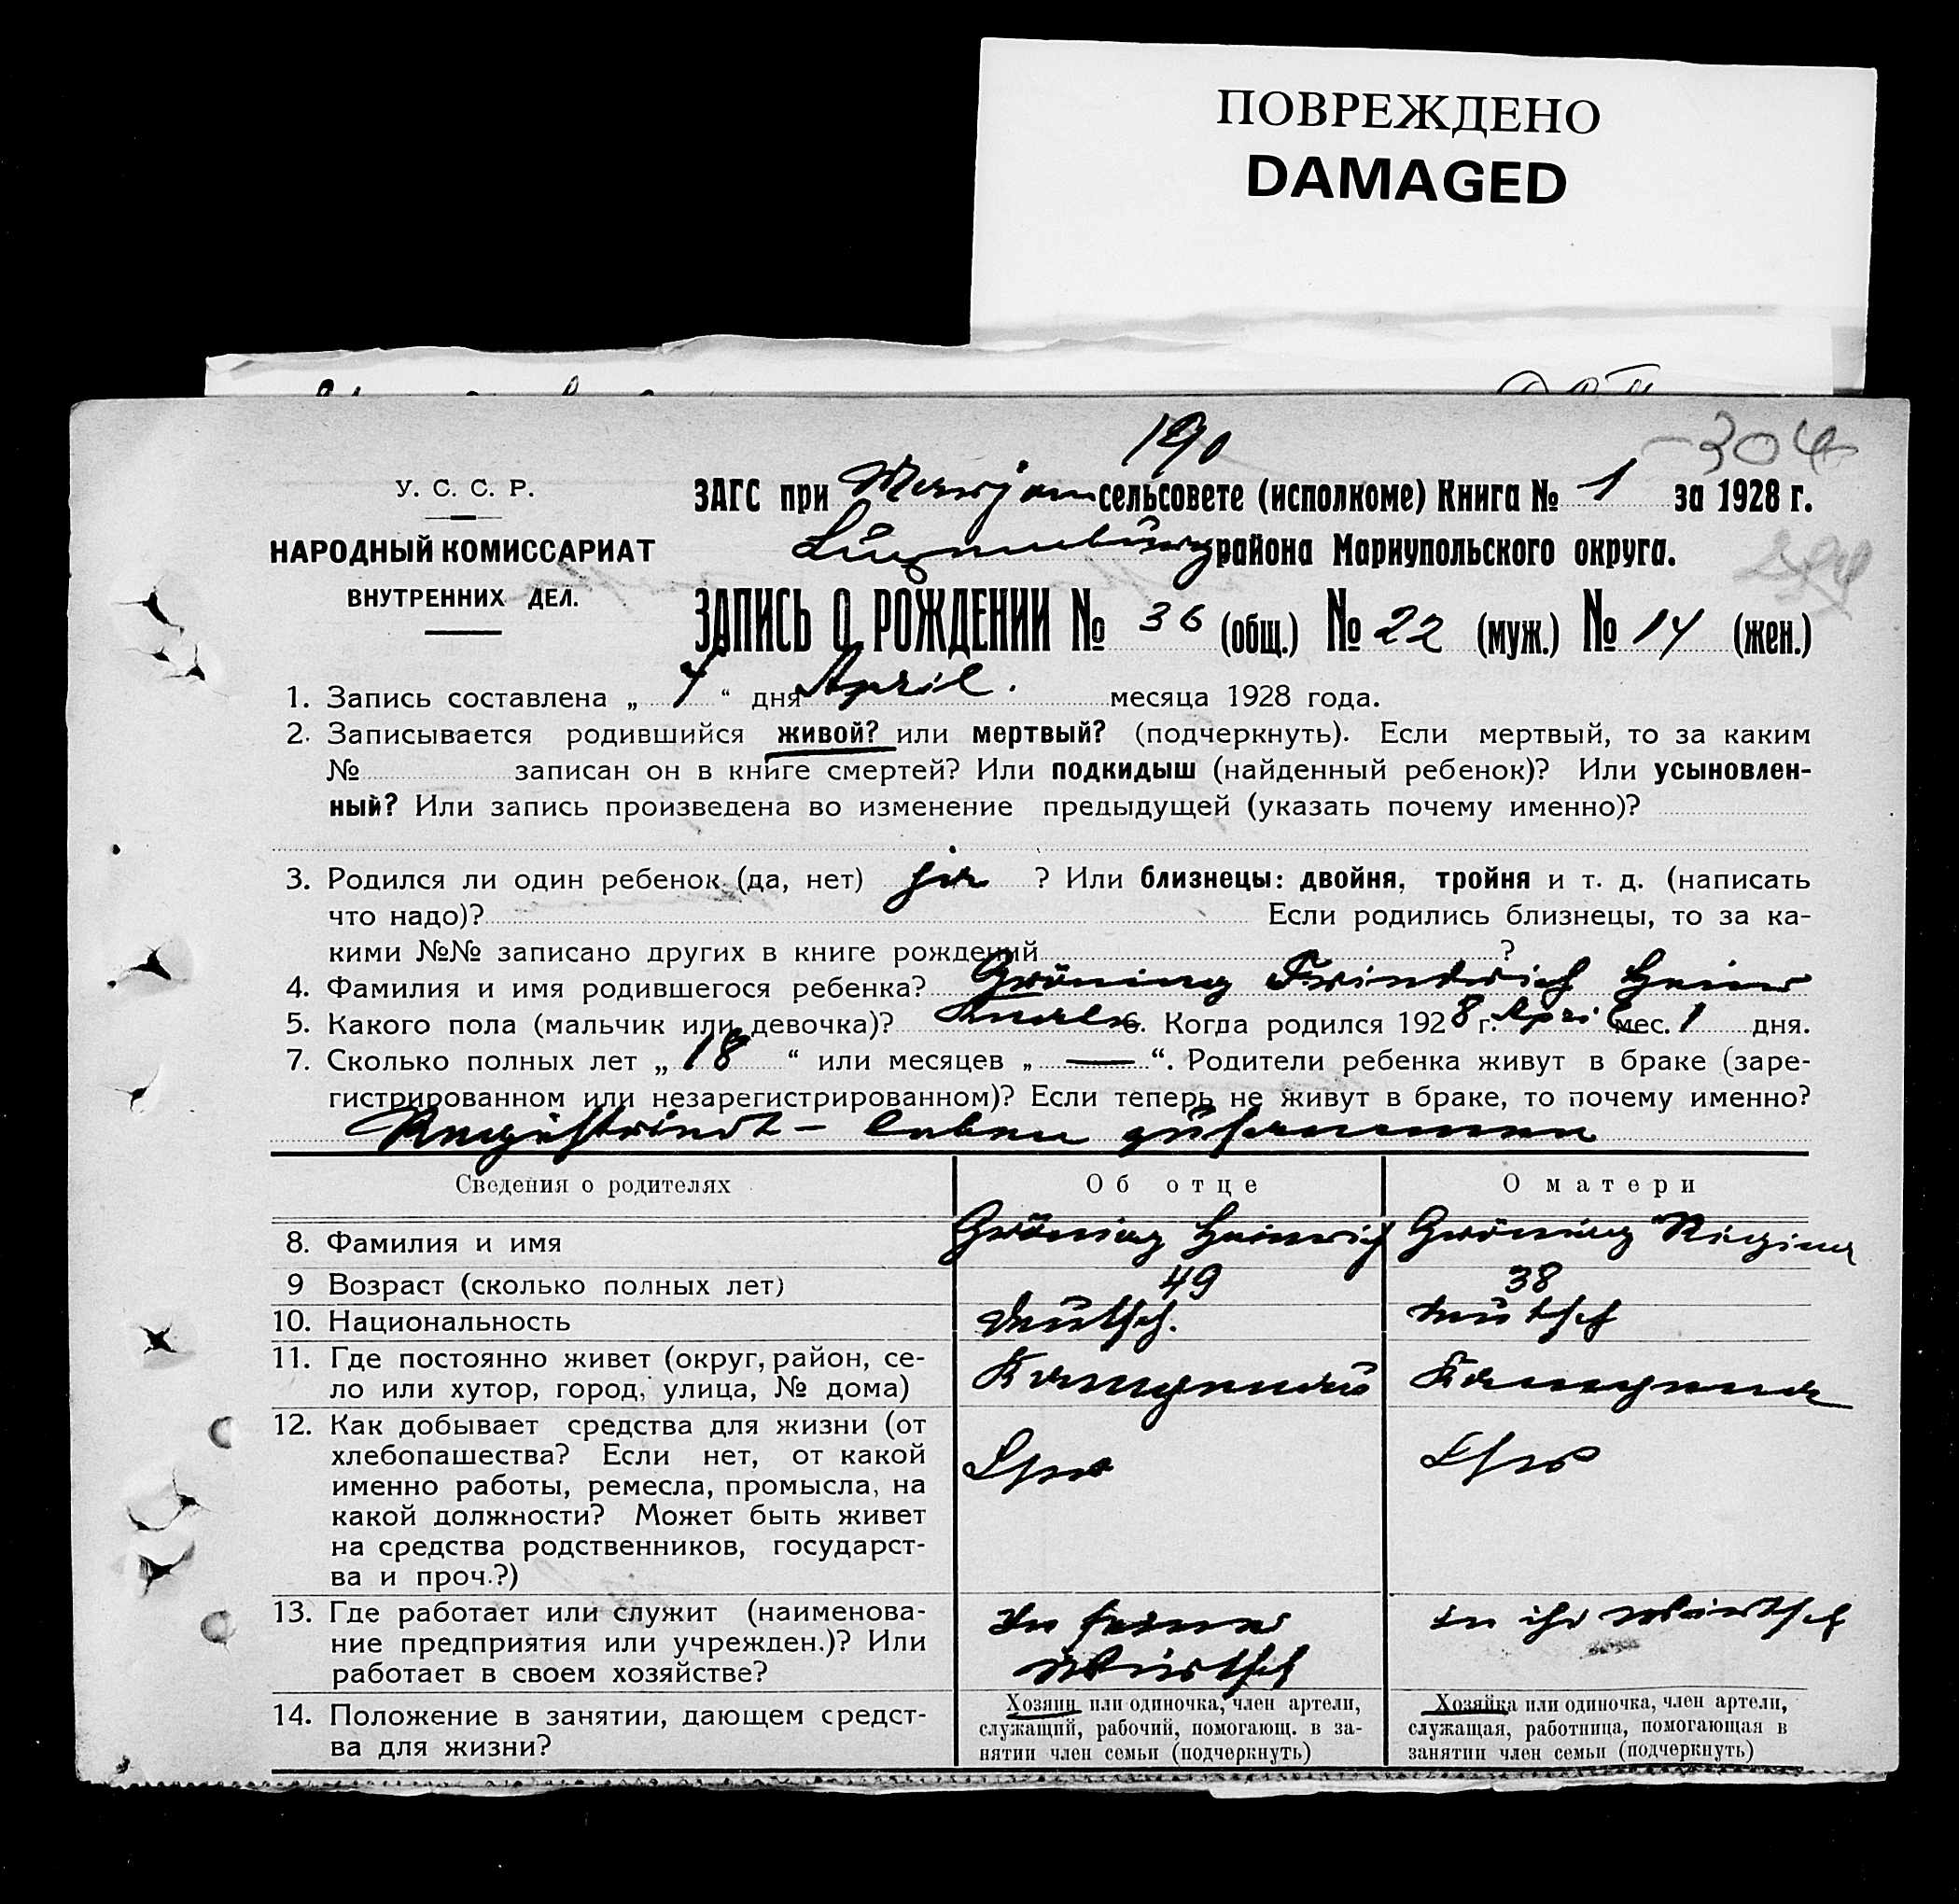 ПОВРЕЖДЕНО
DAMAGED
190
304
У. С. С. Р.
ЗАГС при Marjam сельсовете (исполкоме) Книга № 1 за 1928 г.
НАРОДНЫЙ КОМИССАРИАТ
района Мариупольского округа.
ВНУТРЕННИХ ДЕЛ.
ЗАПИСЬ О РОЖДЕНИИ № 36 (общ.) № 22 (муж.) № 14 (жен.)
1. Запись составлена „ 4 “ дня April. месяца 1928 года.
2. Записывается родившийся живой? или мертвый? (подчеркнуть). Если мертвый, то за каким
№ записан он в книге смертей? Или подкидыш (найденный ребенок)? Или усыновлен-
ный? Или запись произведена во изменение предыдущей (указать почему именно)?
3. Родился ли один ребенок (да, нет) ja ? Или близнецы: двойня, тройня и т. д. (написать
что надо)? Если родились близнецы, то за ка-
кими №№ записано других в книге рождений ?
4. Фамилия и имя родившегося ребенка? Gröning Friedrich Heinr
5. Какого пола (мальчик или девочка)? Knabe 6. Когда родился 1928 г. April мес. 1 дня.
7. Сколько полных лет „ 18 “ или месяцев „ — “. Родители ребенка живут в браке (заре-
гистрированном или незарегистрированном)? Если теперь не живут в браке, то почему именно?
Regestriert – leben zusammen
Сведения о родителях Об отце О матери
8. Фамилия и имя Gröning Heinrich Gröning Regina
9 Возраст (сколько полных лет) 49 38
10. Национальность deutsch. deutsch
11. Где постоянно живет (округ, район, се-
ло или хутор, город, улица, № дома) Kampenau Kampenau
12. Как добывает средства для жизни (от
хлебопашества? Если нет, от какой
именно работы, ремесла, промысла, на
какой должности? Может быть живет
на средства родственников, государст-
ва и проч.?)
13. Где работает или служит (наименова-
ние предприятия или учрежден.)? Или
работает в своем хозяйстве?
In seiner
Wirtsch
in ihr Wirtsch
14. Положение в занятии, дающем средст-
ва для жизни?
Хозяин или одиночка, член артели,
служащий, рабочий, помогающ. в за-
нятии член семьи (подчеркнуть)
Хозяйка или одиночка, член артели,
служащая, работница, помогающая в
занятии член семьи (подчеркнуть)